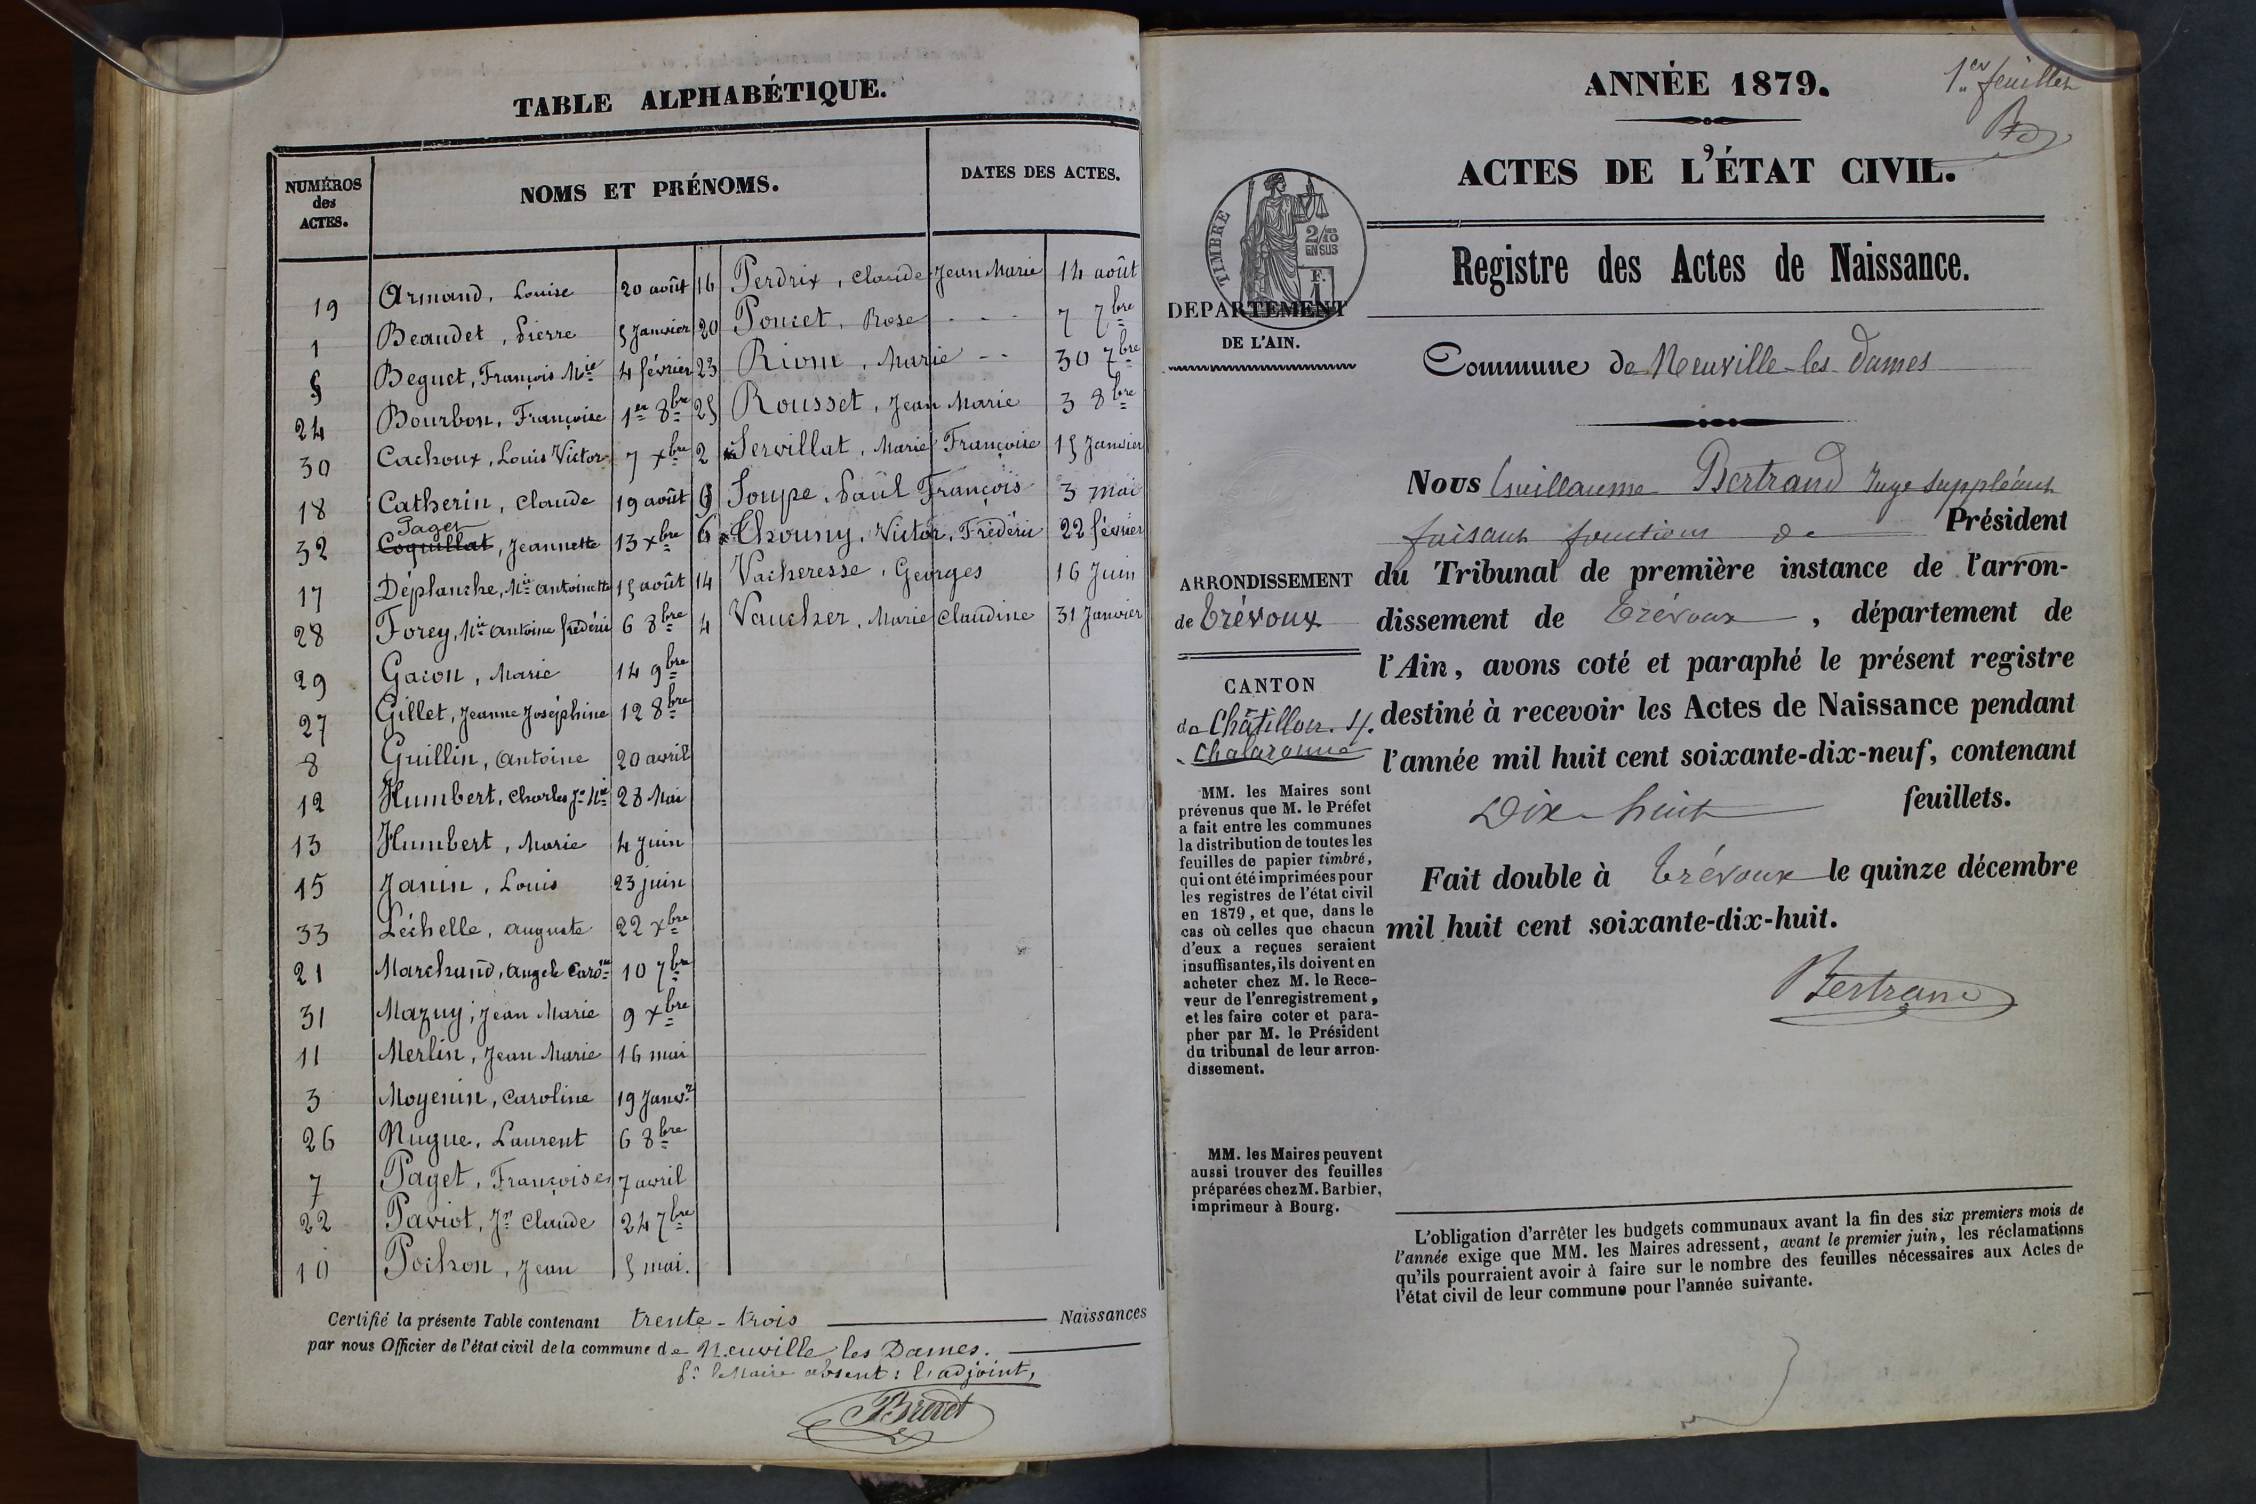 TABLE ALPHABÉTIQUE.
NUMÉROS
des
ACTES.
NOMS ET PRÉNOMS.
DATES DES ACTES.
19 Armand, Louise 20 août
1 Beaudet, Pierre 5 Janvier
5 Beguet, François Mie 4 février
24 Bourbon, Françoise 1er 8bre
30 Cachoux, Louis Victor 7 xbre
18 Catherin, Claude 19 août
Paget
32 Coquillat, Jeannette 13 xbre
17 Déplanche, Mie Antoinette 15 août
28 Forey, Mie Antoine frédéric 6 8bre
29 Gacon, Marie 14 9bre
27 Gillet, Jeanne Joséphine 12 8bre
8 Guillin, Antoine 20 avril
12 Humbert, Charles Jn Mie 28 Mai
13 Humbert, Marie 4 Juin
15 Janin, Louis 23 juin
33 Léchelle, Auguste 22 xbre
21 Marchand, Angele Caroine 10 7bre
31 Mazuy, Jean Marie 9 xbre
11 Merlin, Jean Marie 16 mai
3 Moyenin, Caroline 19 Janvr
26 Nugue, Laurent 6 8bre
7 Paget, Françoise 7 avril
22 Paviot, Jn Claude 24 7bre
10 Pochon, Jean 5 mai.
16 Perdrix, Claude Jean Marie 14 août
20 Poncet, Rose - - - 7 7bre
23 Riom, Marie - - 30 7bre
25 Rousset, Jean Marie 3 8bre
2 Servillat, Marie Françoise 15 Janvier
9 Soupe, Paül François 3 mai
6 Thouny, Victor, Frédéric 22 février
14 Vacheresse, Georges 16 Juin
4 Vaucher, Marie Claudine 31 Janvier
Certifié la présente Table contenant trente-trois Naissances
par nous Officier de l'état civil de la commune de Neuville les Dames.
Pr le Maire absent : l'adjoint,
Brevet
1er feuillet
ANNÉE 1879.
ACTES DE L'ÉTAT CIVIL.
TIMBRE
2/10 EN SUS
F.
1
DEPARTEMENT
DE L'AIN.
Registre des Actes de Naissance.
Commune de Neuville-les-Dames
ARRONDISSEMENT
de Trévoux
CANTON
de Châtillon. s/.
Chalaronne
MM. les Maires sont
prévenus que M. le Préfet
a fait entre les communes
la distribution de toutes les
feuilles de papier timbré,
qui ont été imprimées pour
les registres de l'état civil
en 1879, et que, dans le
cas où celles que chacun
d'eux a reçues seraient
insuffisantes, ils doivent en
acheter chez M. le Rece-
veur de l'enregistrement,
et les faire coter et para-
pher par M. le Président
du tribunal de leur arron-
dissement.
MM. les Maires peuvent
aussi trouver des feuilles
préparées chez M. Barbier,
imprimeur à Bourg.
Nous Guillaume Bertrand Juge suppléant
faisant fonctions de Président
du Tribunal de première instance de l'arron-
dissement de Trévoux, département de
l'Ain, avons coté et paraphé le présent registre
destiné à recevoir les Actes de Naissance pendant
l'année mil huit cent soixante-dix-neuf, contenant
Dix-huit feuillets.
Fait double à Trévoux le quinze décembre
mil huit cent soixante-dix-huit.
Bertrand
L'obligation d'arrêter les budgets communaux avant la fin des six premiers mois de
l'année exige que MM. les Maires adressent, avant le premier juin, les réclamations
qu'ils pourraient avoir à faire sur le nombre des feuilles nécessaires aux Actes de
l'état civil de leur commune pour l'année suivante.